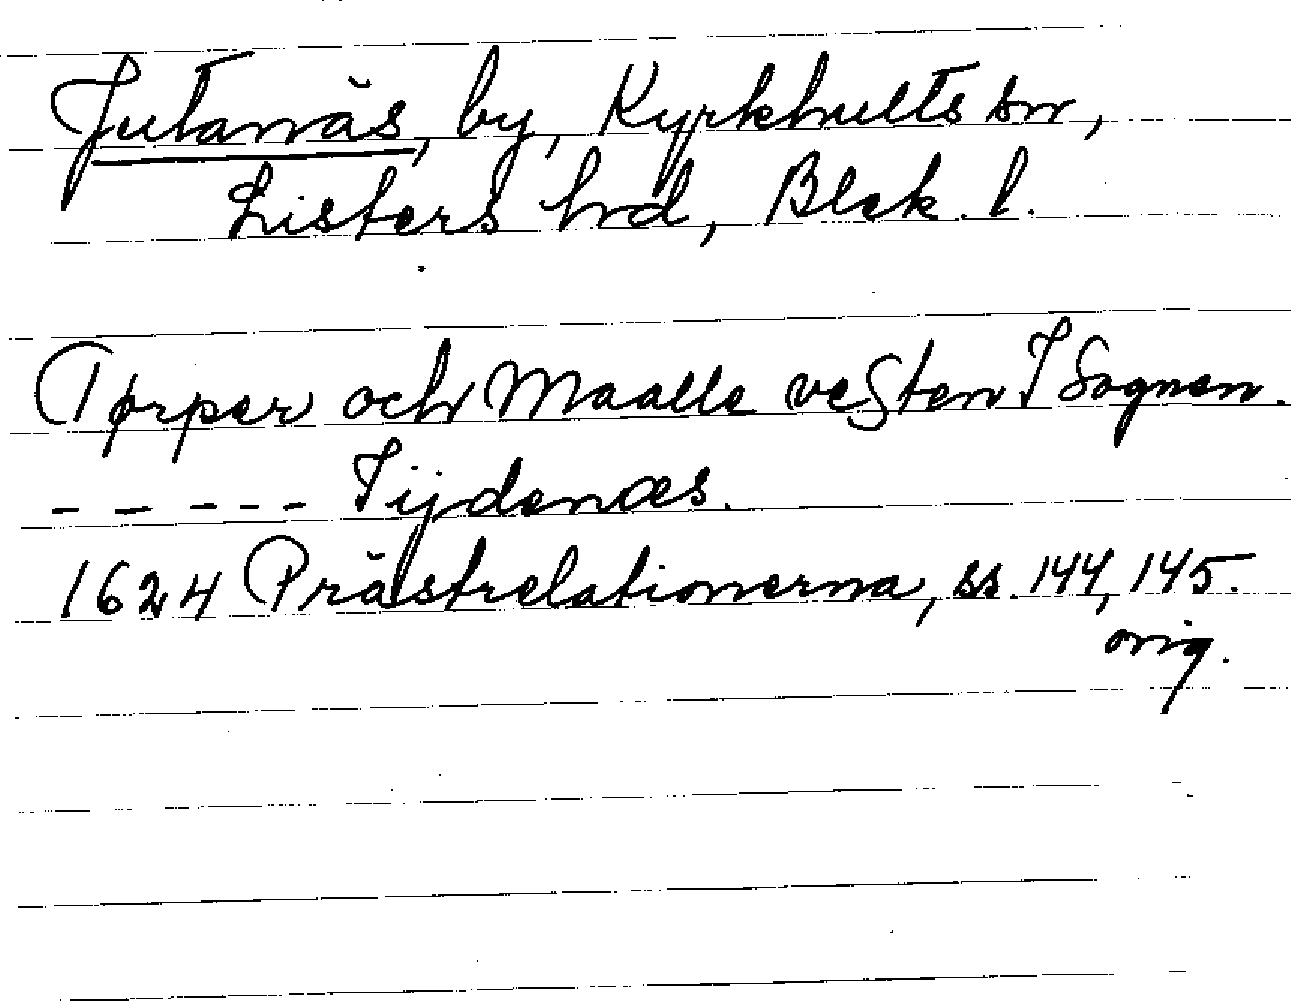 Jutanäs, by, Kyrkhults sn,
Listers hrd, Blek. l.
Tørper och Maalle vesten I Sognen.
- - - - - Jijdenæs.
1624 Prästrelationerna, ss. 144, 145.
orig.